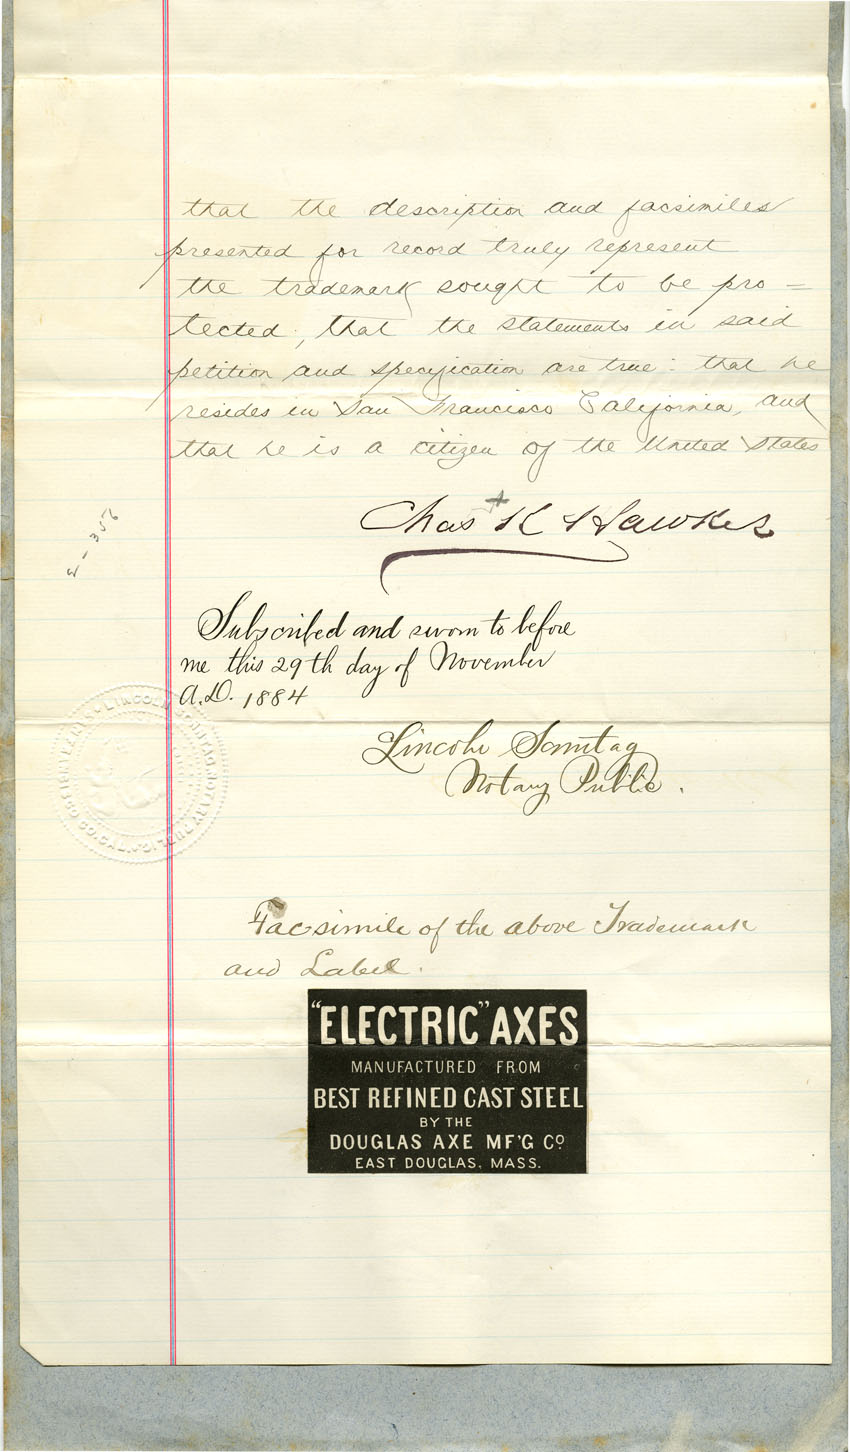 that the description and facsimiles
presented for record truly represent
the trademark sought to be pro=
tected; that the statements in said
petition and specification are true: that he
resides in San Francisco California, and
that he is a citizen of the United States
Chas K Hawkes
Subscribed and sworn to before
me this 29th day of November
A.D. 1884
LINCOLN SONNTAG. NOTARY PUBLIC
CO. CAL.
Lincoln Sonntag
Notary Public.
Facsimile of the above Trademark
and Label.
"ELECTRIC" AXES
MANUFACTURED FROM
BEST REFINED CAST STEEL
BY THE
DOUGLAS AXE MF'G CO
EAST DOUGLAS, MASS.